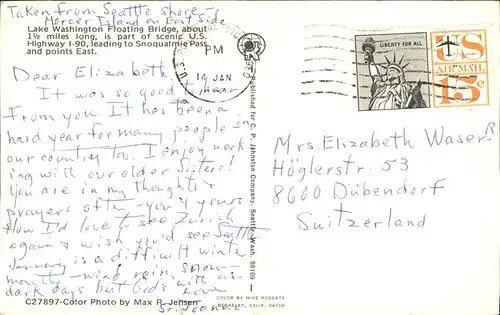 Taken from Seattle shore,
Mercer Island on East Side
Lake Washington Floating Bridge, about
1½ miles long, is part of scenic U.S.
Highway I-90, leading to Snoqualmie Pass
and points East.
PM
14 JAN
Dear Elizabeth,
It was so good to hear
from you. It has been a
hard year for many people in
our country too. I enjoy work
ing with our older Sisters!
You are in my thoughts &
prayers often - you & yours.
How I'd love to see Zurich
again & wish you'd see Seattle
January is a difficult winter
month - wind, rain, snow -
dark days but God's with us.
Love
Sr. Joanne
C27897-Color Photo by Max R. Jensen
Published for C. P. Johnston Company, Seattle, Wash. 98109
COLOR BY MIKE ROBERTS
BERKELEY, CALIF. 94710
LIBERTY FOR ALL
US
AIR MAIL
15¢
Mrs. Elizabeth Waser-R
Höglerstr. 53
8600 Dübendorf
Switzerland